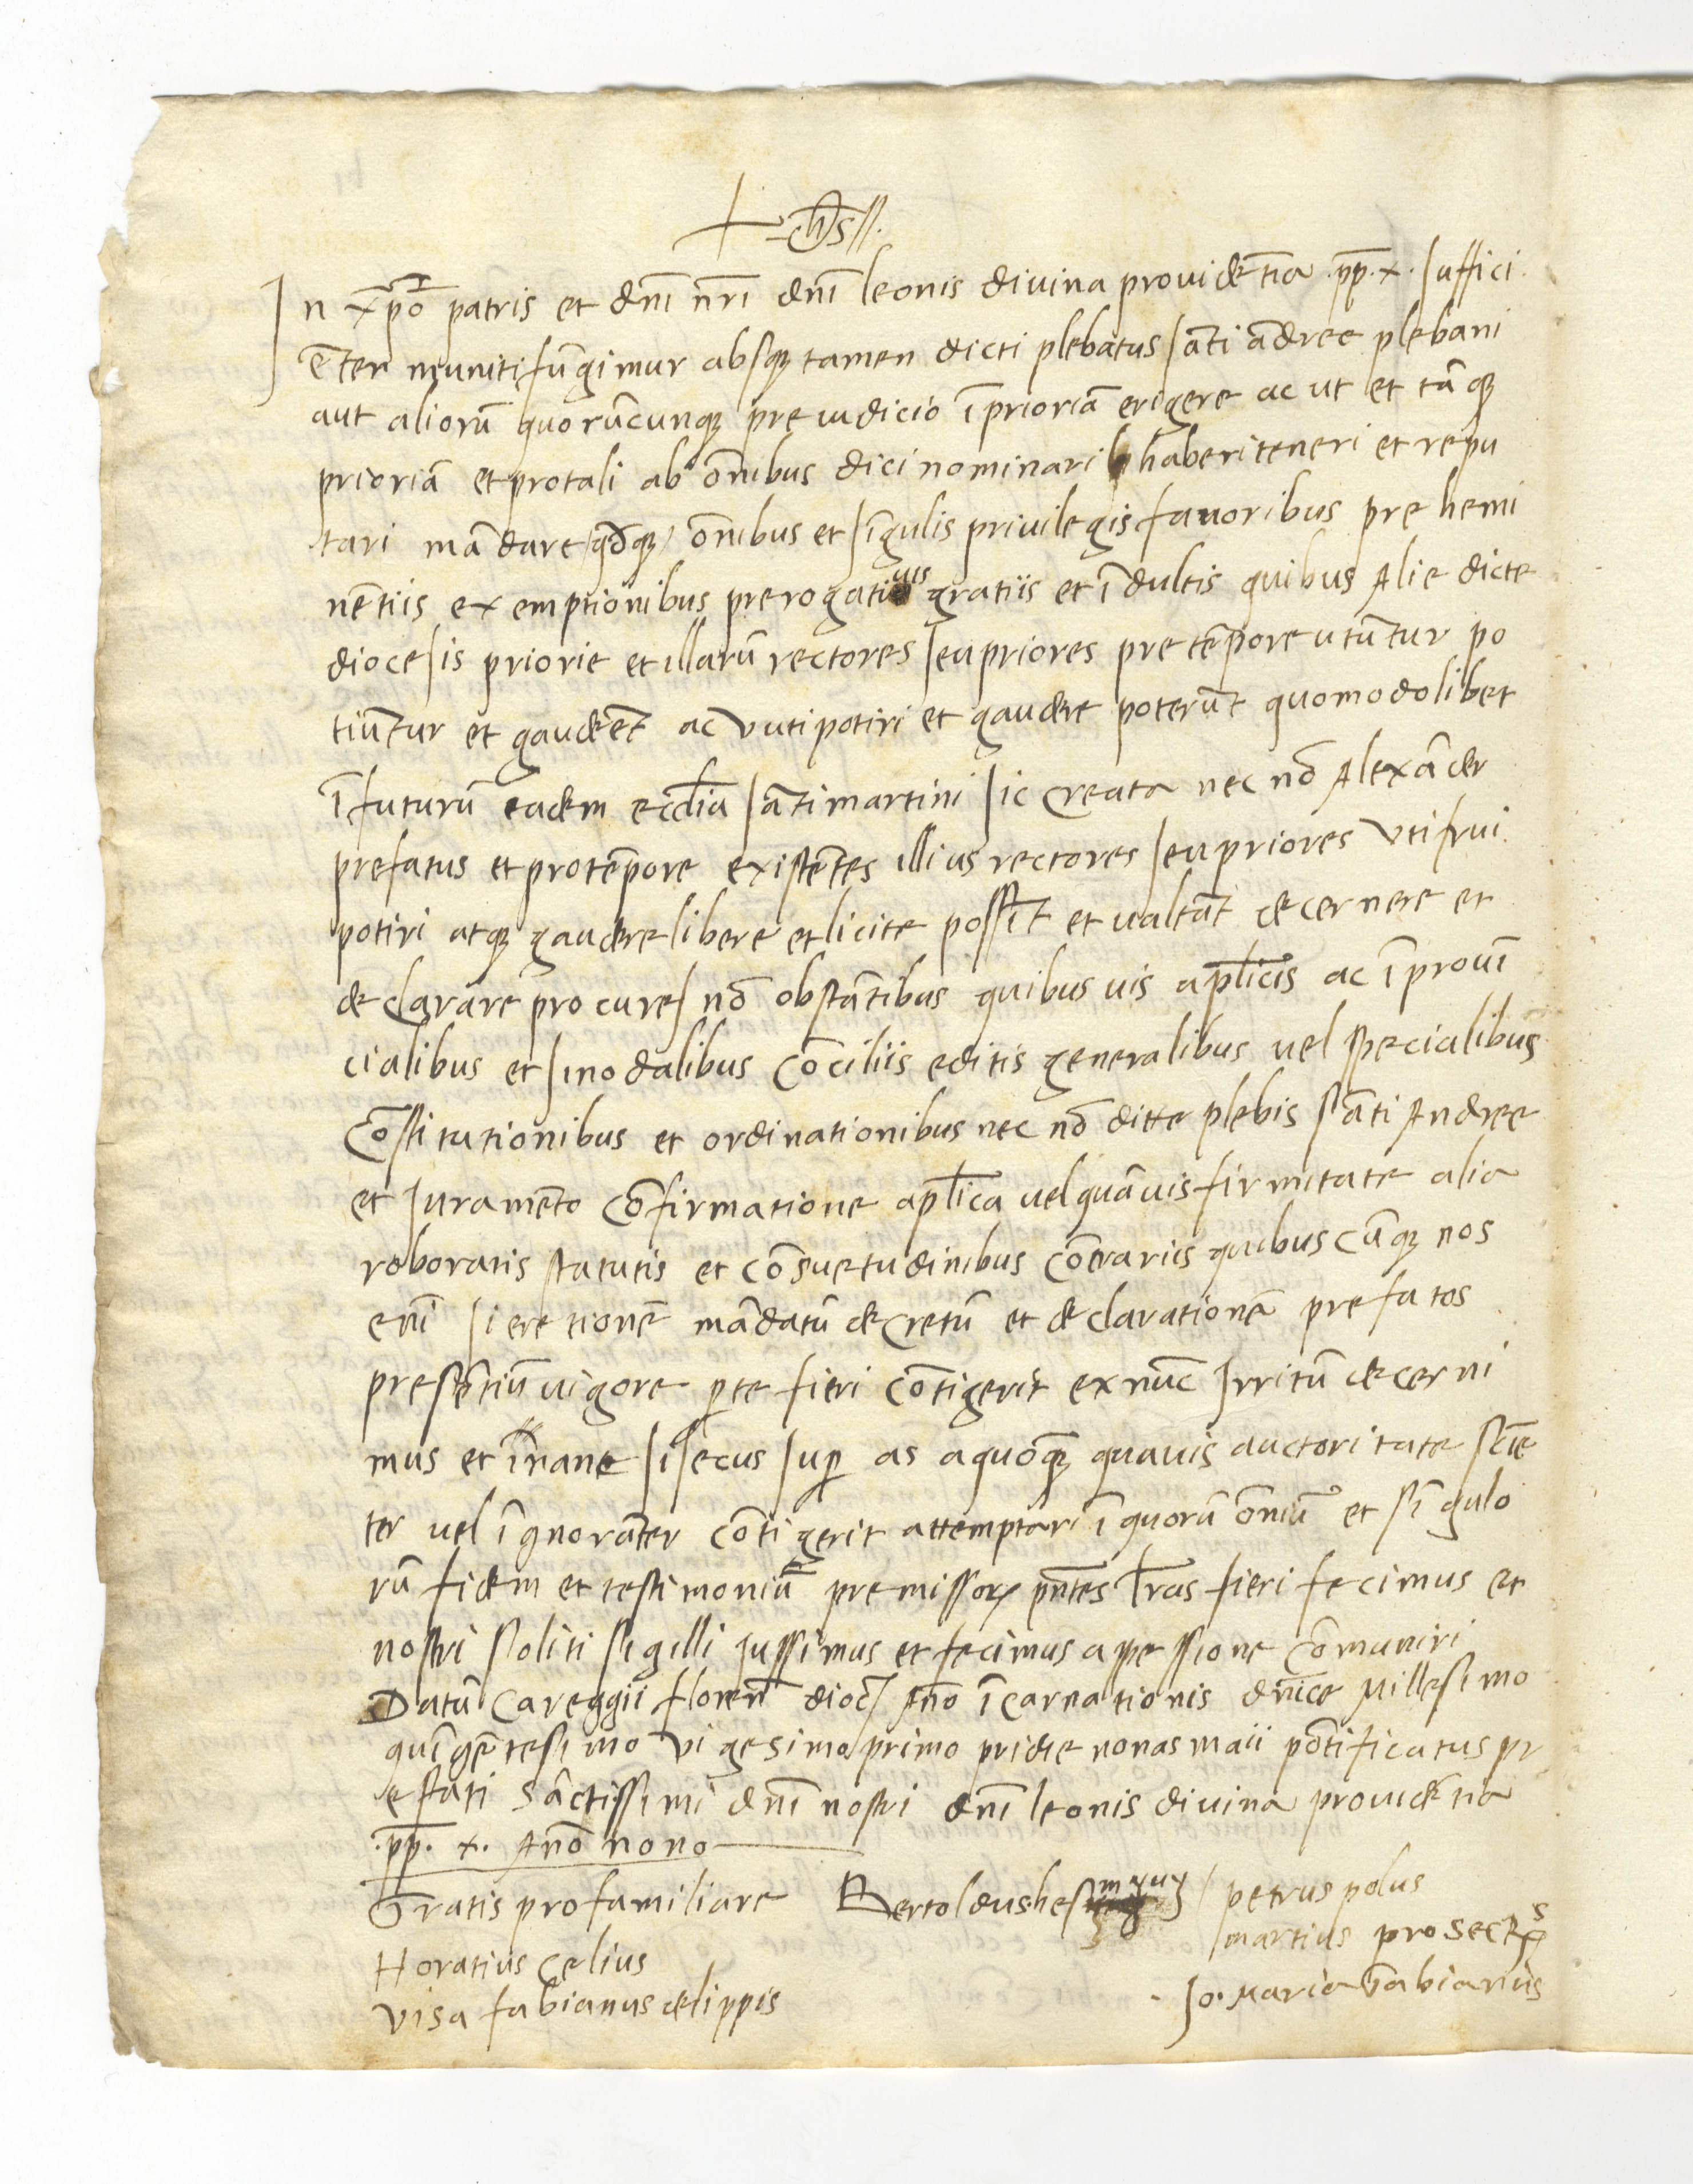 + yhs //.
In xp̄o patris et dn̄i nr̄i dn̄i leonis divina providētia .pp̄. x. suffici
ēter muniti fūgimur absq; tamen dicti plebatus sāti ādree plebani
aut aliorū quorūcunq; preiudicio ī prioriā erigere ac ut et tā q;
prioriā et pro tali ab ōnibus dici nominari haberi teneri et repu
tari mādare qd̄q; ōnibus et sīgulis privilegis favoribus prehemi
nētiis exemptionibus prerogativis gratiis et īdultis quibus Alie dicte
diocesis priorie et illarū rectores seu priores pre tēpore utūtur po
tiūtur et gaudēt ac vuti potiri et gaudere poterūt quomodolibet
ī futurū eadem eccl̄ia sāti martini sic creata nec nō Alexāder
prefatus et pro tēpore existētes illius rectores seu priores uti frui
potiri atq; gaudere libere et licite possīt et valeāt decernere et
declarare procures nō obstātibus quibusvis apl̄icis ac ī provī
cialibus et sinodalibus cōciliis editis generalibus vel specialibus
Cōstitutionibus et ordinationibus nec nō ditte plebis sāti Andree
et Juramēto cōfirmatione apl̄ica vel quāvis firmitate alia
roboratis statutis et cōsuetudinibus cōtrariis quibuscūq; nos
enī si eretionē mādatū decretū et declarationē prefatos
presētiū vigore p̄ te fieri cōtigerit ex nūc Irritū decerni
mus et īnane si secus sup̄ as a quoq̄; quavis auctoritate sciē
ter vel īgnorāter cōtigerit attemptari ī quorū ōniū et sīgulo
rū fidem et testimoniū premissor̄ pn̄tes lr̄as fieri fecimus et
nostri soliti sigilli Jussimus et fecimus apessione cōmuniri
Datū Careggii florēn dioc̄ An̄o īcarnationis dn̄ice Millesimo
quīgētesimo vigesimo primo pridie nonas maii pōtificatus pr
efati sāctissimi dn̄i nostri dn̄i leonis divina providētia
.pp̄. x. An̄o nono
Gratis pro familiare Bertoldus he / petrus polus
Horatius Celius martius pro secr̄s
visa fabianus de lippis Jo. Maria